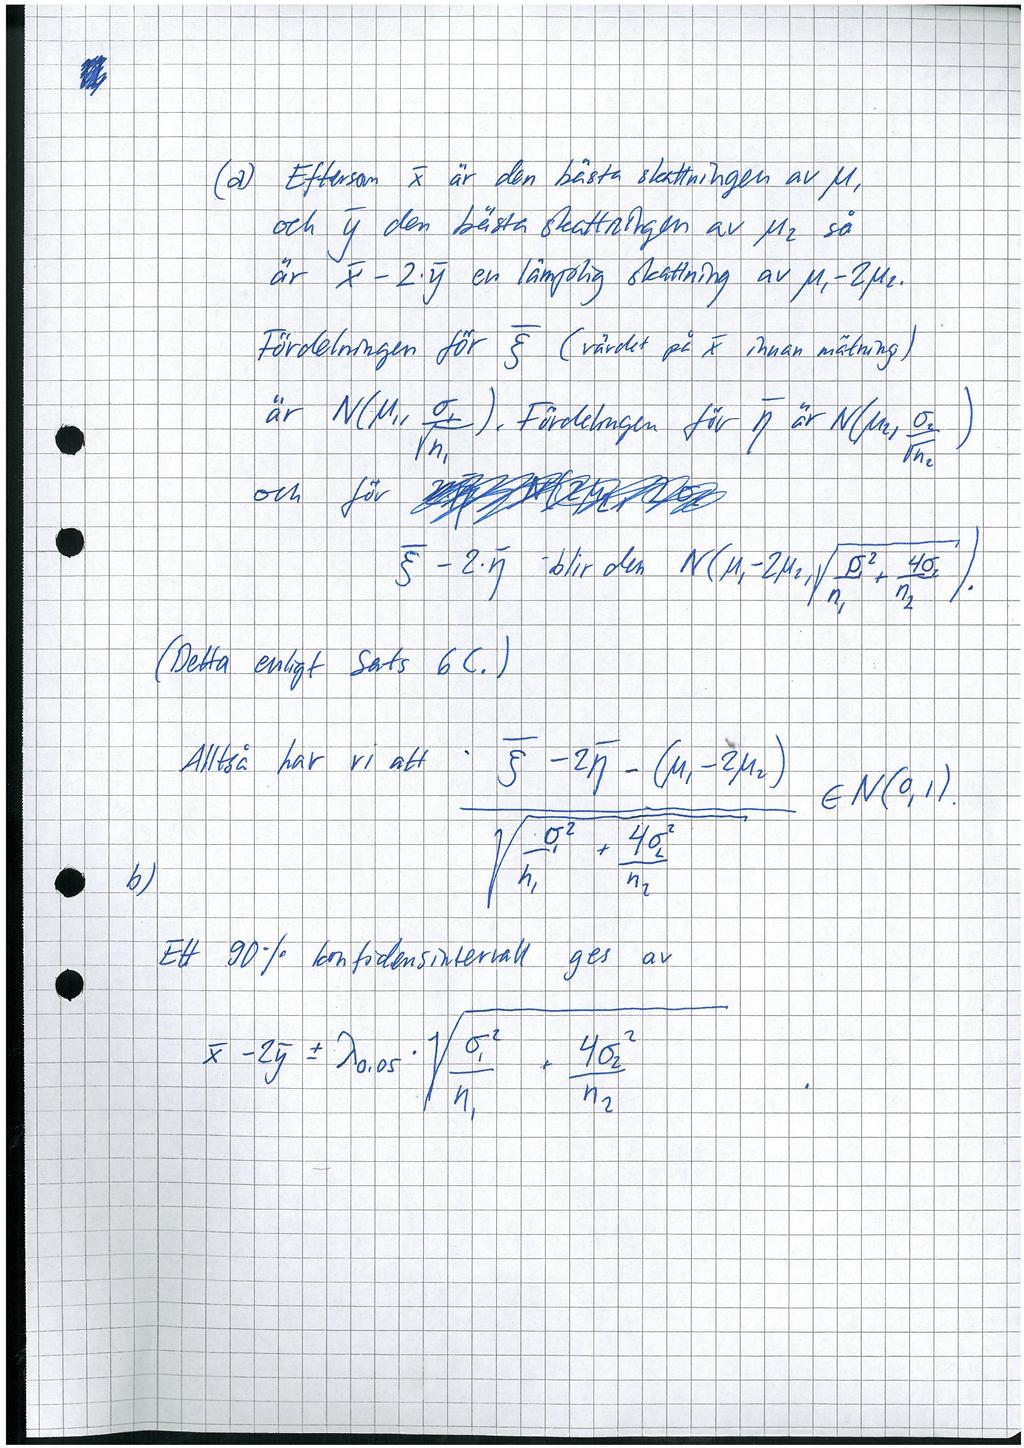 (a) Eftersom x̄ är den bästa skattningen av μ₁
och ȳ den bästa skattningen av μ₂ så
är x̄ - 2·ȳ en lämplig skattning av μ₁-2μ₂.
Fördelningen för ξ̄ (värdet på x̄ innan mätning)
är N(μ₁, σ₁/√n₁). Fördelningen för η̄ är N(μ₂, σ₂/√n₂)
och för
ξ̄ - 2·η̄ blir den N(μ₁-2μ₂, √(σ₁²/n₁ + 4σ₂/n₂)).
(Detta enligt Sats 6C.)
Alltså har vi att (ξ̄ - 2η̄ - (μ₁-2μ₂)) / √(σ₁²/n₁ + 4σ₂²/n₂) ∈ N(0,1).
b)
Ett 90% konfidensintervall ges av
x̄ - 2ȳ ± λ₀.₀₅ · √(σ₁²/n₁ + 4σ₂²/n₂) .